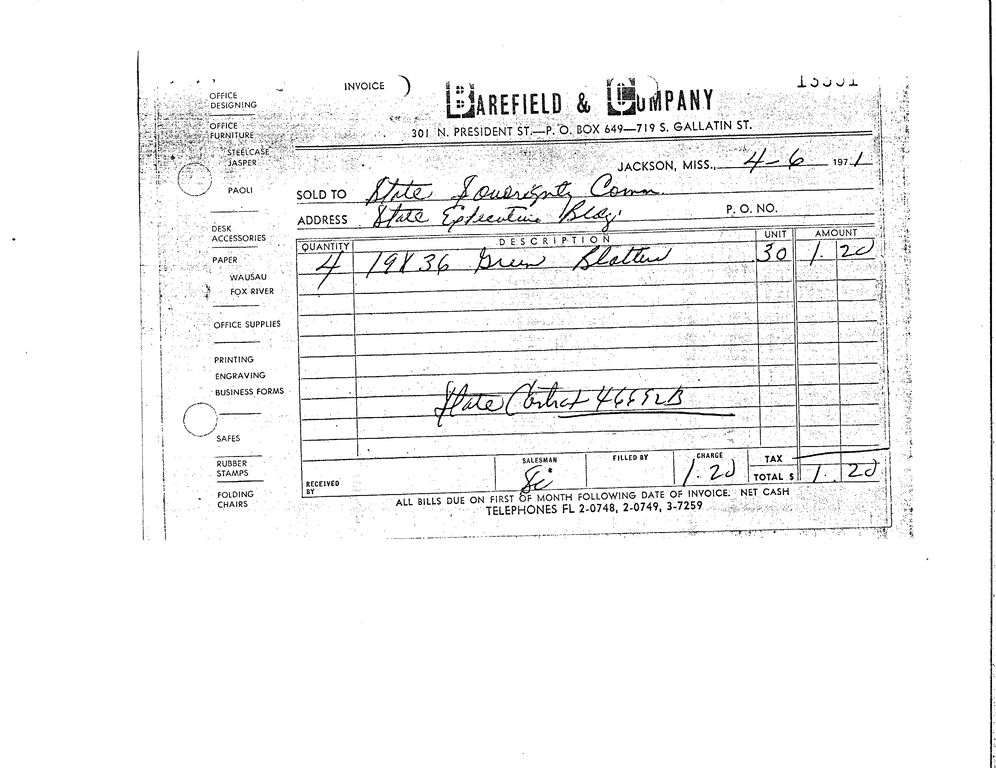 INVOICE
BAREFIELD & COMPANY
301 N. PRESIDENT ST.—P. O. BOX 649—719 S. GALLATIN ST.
JACKSON, MISS., 4-6 1971
SOLD TO State Sovereignty Comm.
ADDRESS State Executive Bldg. P. O. NO.
QUANTITY DESCRIPTION UNIT AMOUNT
4 19X36 Green Blotters 30 1.20
State Contract
RECEIVED BY SALESMAN FILLED BY CHARGE 1.20 TAX
TOTAL $ 1.20
ALL BILLS DUE ON FIRST OF MONTH FOLLOWING DATE OF INVOICE. NET CASH
TELEPHONES FL 2-0748, 2-0749, 3-7259
OFFICE
DESIGNING
OFFICE
FURNITURE
STEELCASE
JASPER
PAOLI
DESK
ACCESSORIES
PAPER
WAUSAU
FOX RIVER
OFFICE SUPPLIES
PRINTING
ENGRAVING
BUSINESS FORMS
SAFES
RUBBER
STAMPS
FOLDING
CHAIRS